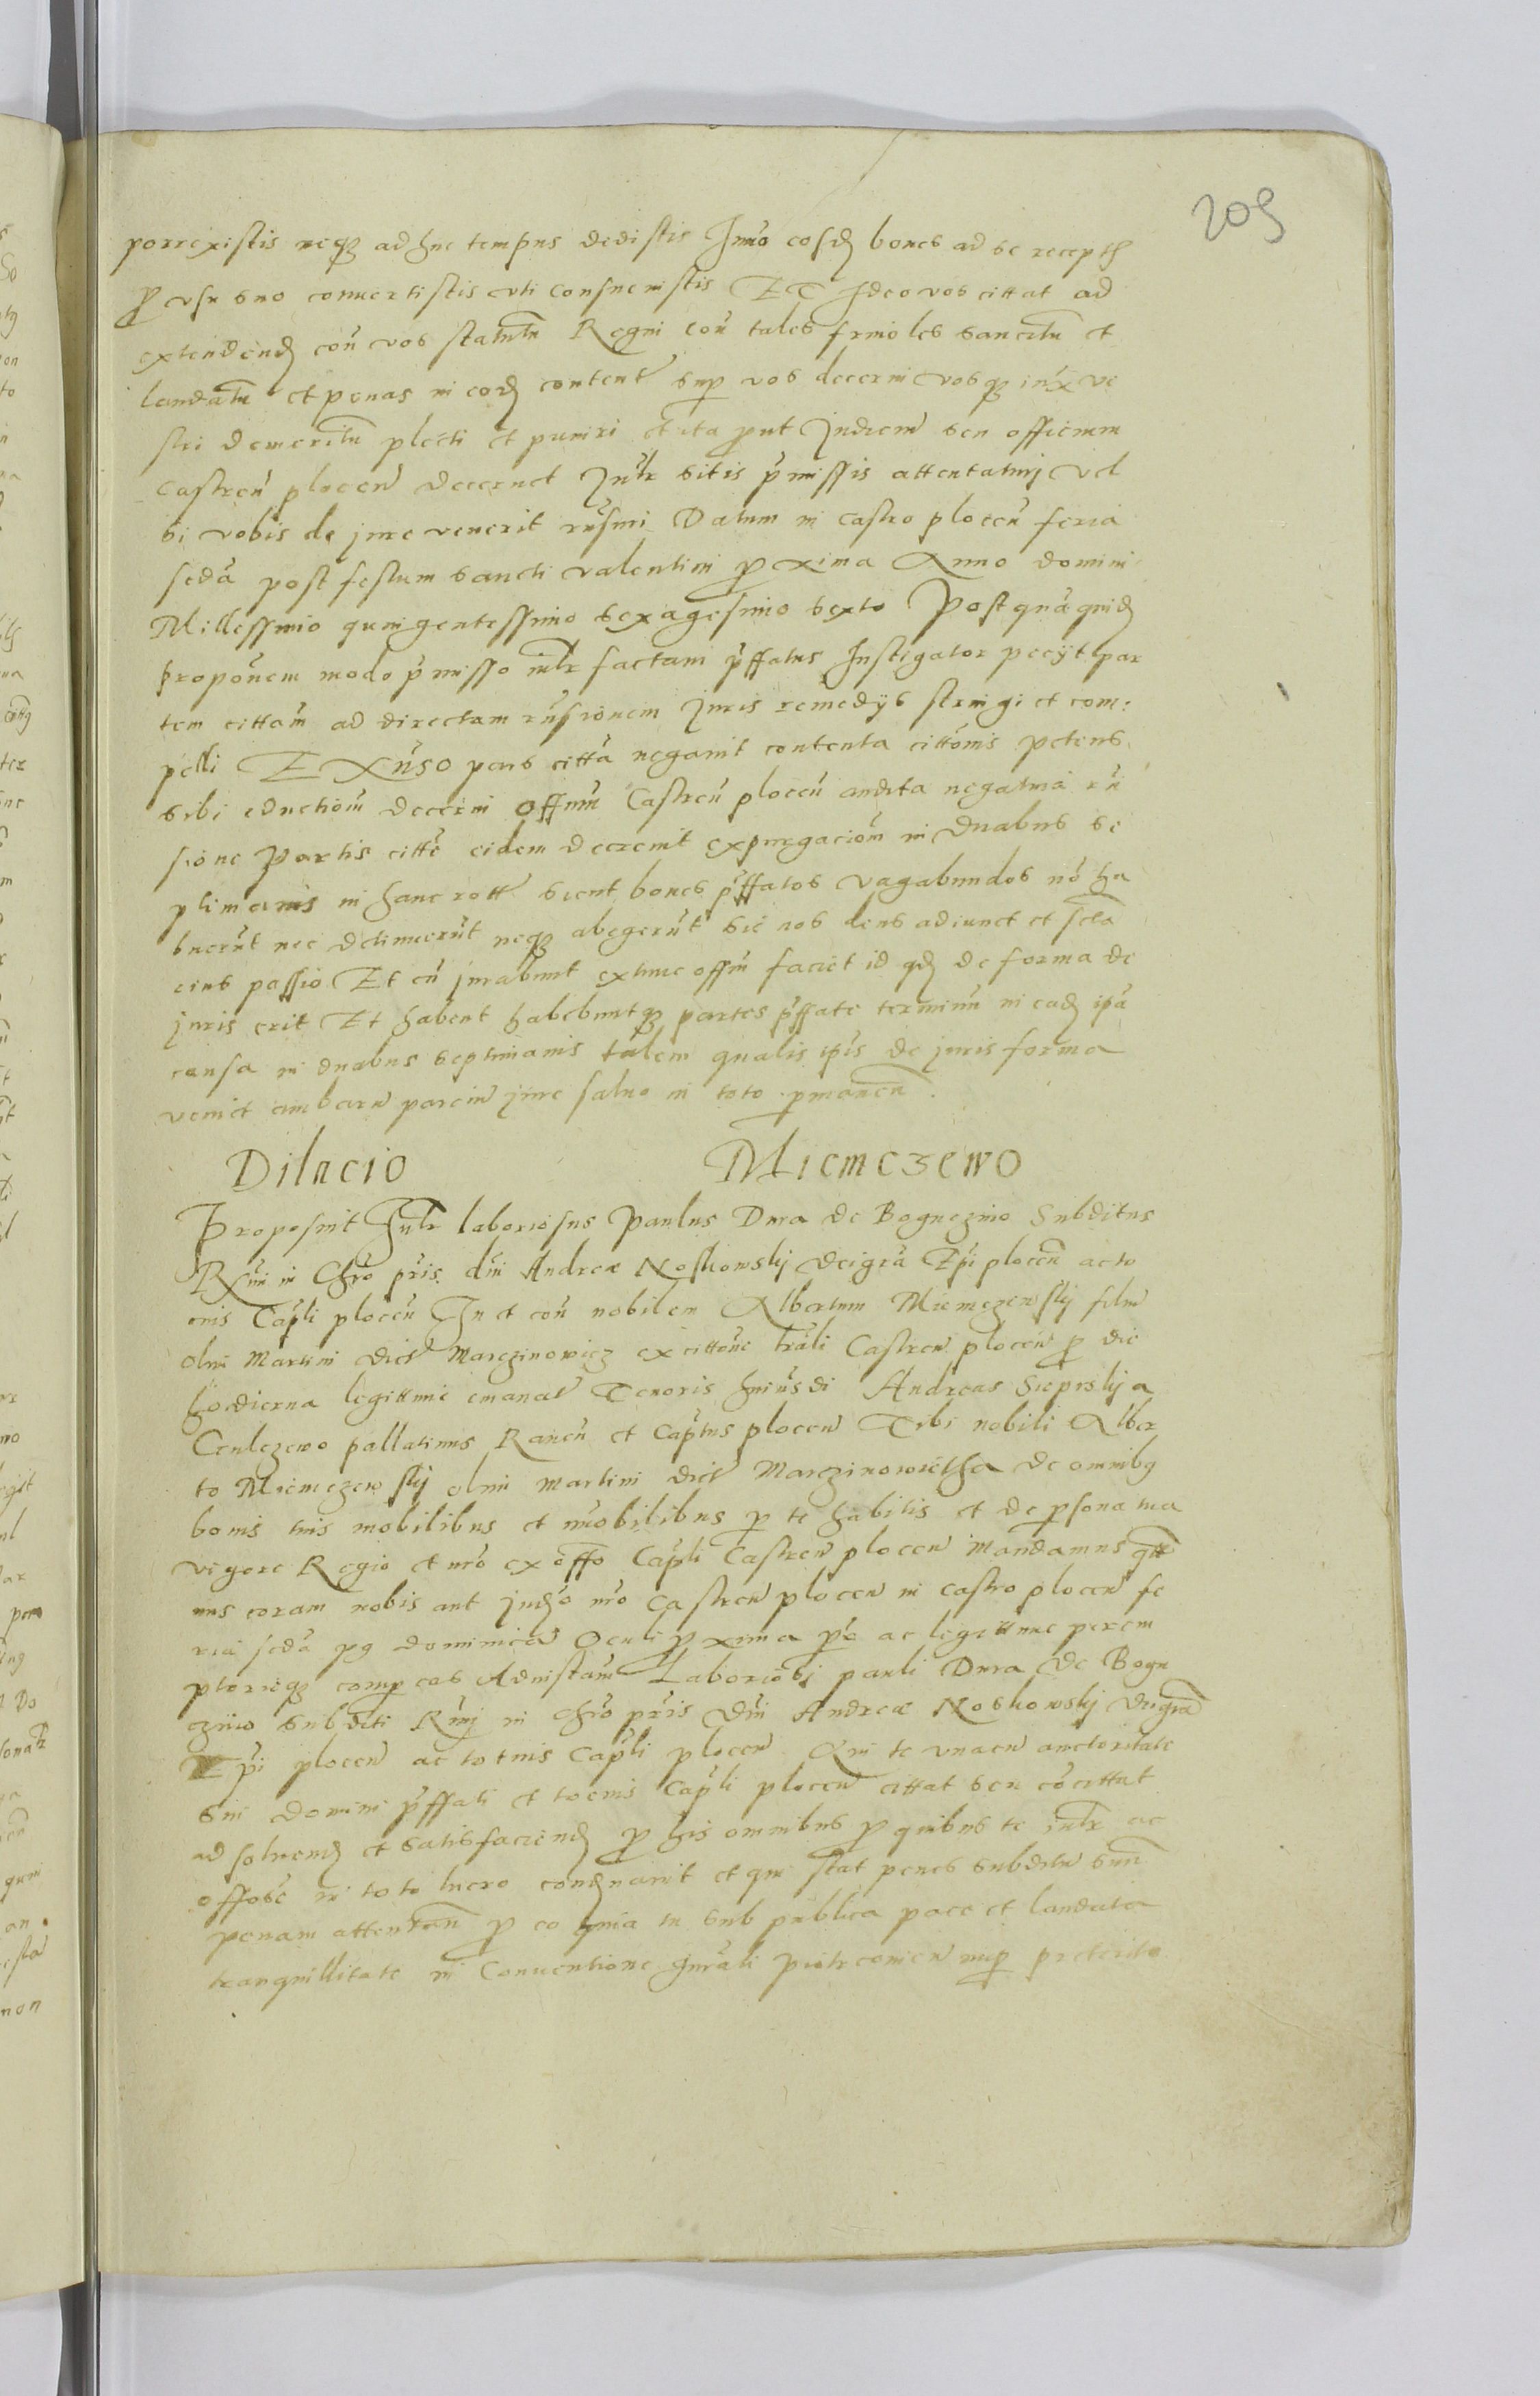 209
porrexistis neq3 adhuc tempus dedistis Imo eosd boues ad se recepth
p vsu suo conuertistis vti consueuistis ET Ideo vos cittat ad
extendend con vos statutu Regni con tales friuoles sancitu et
laudatu et penas in eod content sup vos decerni vosq3 iux ve
stri demeritu plecti et puniri et ita put Iudiciu seu officium
Castren plocen decernet Iutr sitis pmissis attentaturi vel
si vobis de iure venerit rnsuri Datum in Castro plocen feria
scda post festum sancti valentini pxima Anno domini
Millessimo quingentessimo sexagesimo sexto Post qua quid
proponem modo pmisso iutr factam pffatus Instigator pecyt par
tem cittam ad directam rnsionem Iuris remedys stringi et com:
pelli EX Xnso pars citta negauit contenta cittonis petens
sibi eductiom decerni Offum Castren plocen audita negatiua rn
sione Partis citte eidem decreuit expurgaciom in duabus se
ptimanis in hanc rott sicut boues pffatos vagabundos no ha
buerut nec detinuerut neq3 abegerut sic nos deus adiuuet et scta
eius passio Et cu iurabunt extunc offm faciet id qd de forma de
iuris erit Et habent habebuntq3 partes pffate terminu in ead ipa
causa in duabus septimanis talem qualis ipis de iuris forma
veniet ambaru parciu iure saluo in toto pmanen.
Dilacio Miemczewo
Proposuit Iutr laboriosus Paulus Dura de Boguczino Subditus
RXmi in Chro pris dni Andreæ Noskowskij deigra Epi plocen ac to
cius Capli plocen In et con nobilem Albertum Miemczewskij filiu
olim Martini dict Marczinowicz ex cittone trali Castren plocen p die
hodierna legittime emanat Tenoris huiusdi Andreas Sieprskij a
Czulczewo pallatinus Rauen et Captus plocen Tibi nobili Alber
to Miemczewskij olim Martini dict Marczinowietha de omnibg
bonis tuis mobilibus et imobilibus p te habitis et de psona tua
vigore Regio et nro ex offo Capli Castren plocen Mandamus qtt
nus coram nobis aut iudo nro Castren plocen in Castro plocen fe
ria scda pg dominica Oculi pxima pe ac legittime perem
ptorieq3 compeas Ad instam Laboriosi pauli Dura de Bogu
czino subditi Rmi in Chro pris dni Andreæ Noskowskij deigra
Epi plocen ac totius Capli plocen Qui te vnacu auctoritate
sui domini pffati et tocius Capli plocen cittat seu cocittat
ad soluend et satisfaciend p his omnibus p quibus te iutr ac
offose in toto lucro condnauit et qui stat penes subditu suu
penam attentan p eo quia tu sub publica pace et laudata
tranquillitate in Conuentione gnrali piotrcouien nup preterita